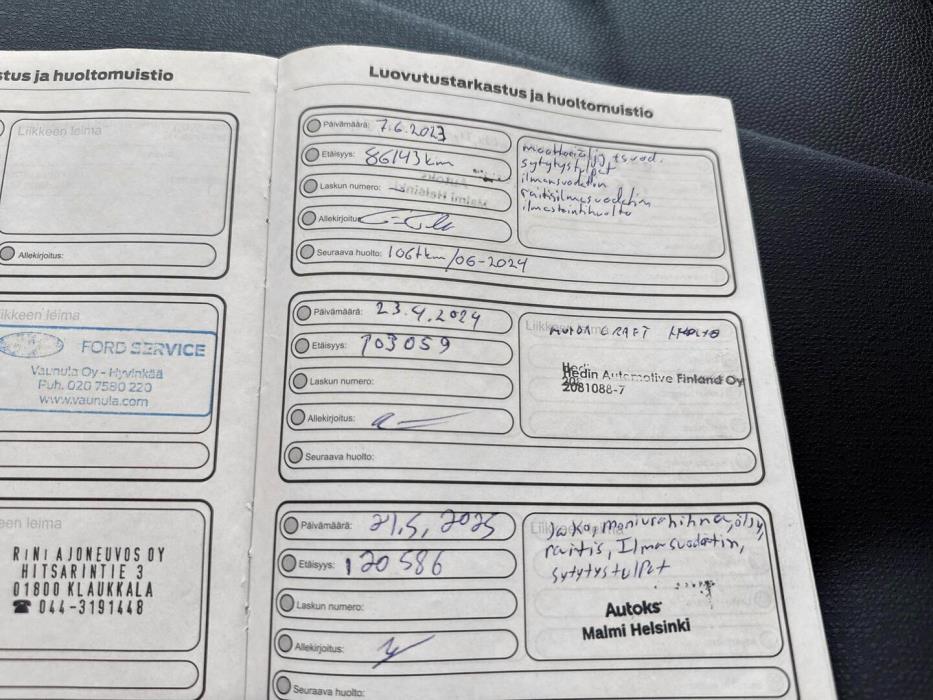 stus ja huoltomuistio
Liikkeen leima
Allekirjoitus:
ikkeen leima
FORD SERVICE
Vaunula Oy - Hyvinkää
Puh. 020 7580 220
www.vaunula.com
een leima
RINI AJONEUVOS OY
HITSARINTIE 3
01800 KLAUKKALA
☎ 044-3191448
Luovutustarkastus ja huoltomuistio
Päivämäärä: 7.6.2023
Etäisyys: 86143 km
Laskun numero:
Allekirjoitus
Seuraava huolto: 106tkm/06-2024
sytytystulpat
ilmansuodatin
raitisilmasuodatin
ilmastointihuolto
Päivämäärä: 23.4.2024
Etäisyys: 103059
Laskun numero:
Allekirjoitus:
Seuraava huolto:
HUOLTO
Hedin Automotive Finland Oy
2081088-7
Päivämäärä: 21.5, 2025
Etäisyys: 120586
Laskun numero:
Allekirjoitus:
Seuraava huolto:
Jako, moniurahihna, öljy,
raitis, Ilmasuodatin,
sytytystulpat
Autoks
Malmi Helsinki